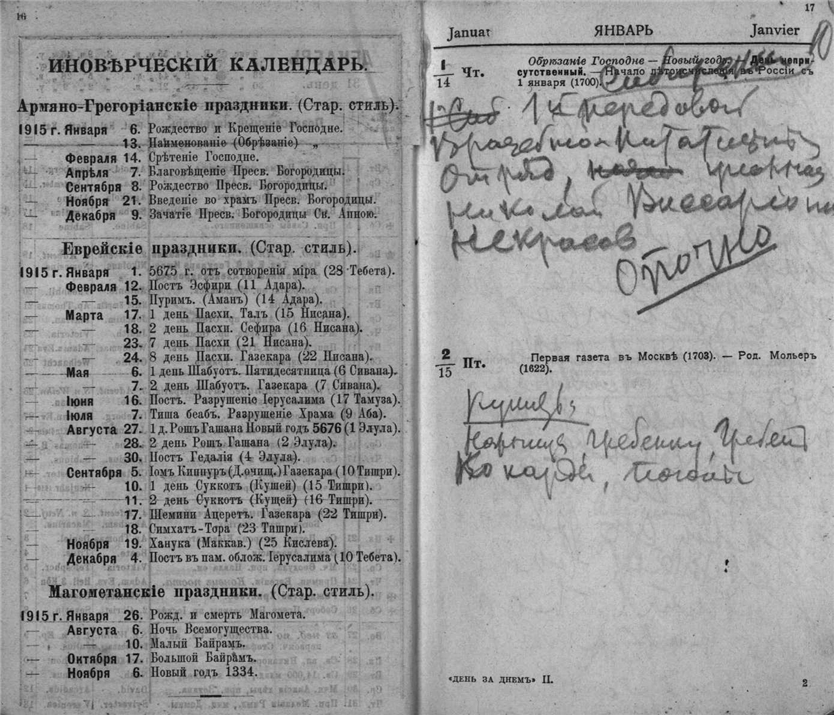 16
ИНОВѢРЧЕСКІЙ КАЛЕНДАРЬ.
Армяно-Грегоріанскіе праздники. (Стар. стиль).
1915 г. Января 6. Рождество и Крещеніе Господне.
— 13. Наименованіе (Обрѣзаніе) „
Февраля 14. Срѣтеніе Господне.
Апрѣля 7. Благовѣщеніе Пресв. Богородицы.
Сентября 8. Рождество Пресв. Богородицы.
Ноября 21. Введеніе во храмъ Пресв. Богородицы.
Декабря 9. Зачатіе Пресв. Богородицы Св. Анною.
Еврейскіе праздники. (Стар. стиль).
1915 г. Января 1. 5675 г. отъ сотворенія міра (28 Тебета).
— Февраля 12. Постъ Эсфири (11 Адара).
— — 15. Пуримъ. (Аманъ) (14 Адара).
— Марта 17. 1 день Пасхи. Талъ (15 Нисана).
— — 18. 2 день Пасхи. Сефира (16 Нисана).
— — 23. 7 день Пасхи (21 Нисана).
— — 24. 8 день Пасхи. Газекара (22 Нисана).
— Мая 6. 1 день Шабуотъ. Пятидесятница (6 Сивана).
— — 7. 2 день Шабуотъ. Газекара (7 Сивана).
— Іюня 16. Постъ. Разрушеніе Іерусалима (17 Тамуза).
— Іюля 7. Тиша беабъ. Разрушеніе Храма (9 Аба).
— Августа 27. 1 д. Рошъ Гашана Новый годъ 5676 (1 Элула).
— — 28. 2 день Рошъ Гашана (2 Элула).
— — 30. Постъ Гедалія (4 Элула).
— Сентября 5. Іомъ Киппуръ (Д. очищ.) Газекара (10 Тишри).
— — 10. 1 день Суккотъ (Кущей) (15 Тишри).
— — 11. 2 день Суккотъ (Кущей) (16 Тишри).
— — 17. Шемини Ацеретъ. Газекара (22 Тишри).
— — 18. Симхатъ-Тора (23 Тишри).
— Ноября 19. Ханука (Маккав.) (25 Кислева).
— Декабря 4. Постъ въ пам. облож. Іерусалима (10 Тебета).
Магометанскіе праздники. (Стар. стиль).
1915 г. Января 26. Рожд. и смерть Магомета.
— Августа 6. Ночь Всемогущества.
— — 10. Малый Байрамъ.
— Октября 17. Большой Байрамъ.
— Ноября 6. Новый годъ 1334.
17
Januar ЯНВАРЬ Janvier
1/14 Чт. Обрѣзаніе Господне — Новый годъ. День непри-
сутственный. — Начало лѣтоисчисленія въ Россіи съ
1 января (1700).
1й передовой
Врачебно-Питательный
Отряд,
Николай Виссаріон
Некрасов
Отточно
2/15 Пт. Первая газета въ Москвѣ (1703). — Род. Мольеръ
(1622).
Купить:
гребенку,
Кокарды, погоны
!
«ДЕНЬ ЗА ДНЕМЪ» II.
2